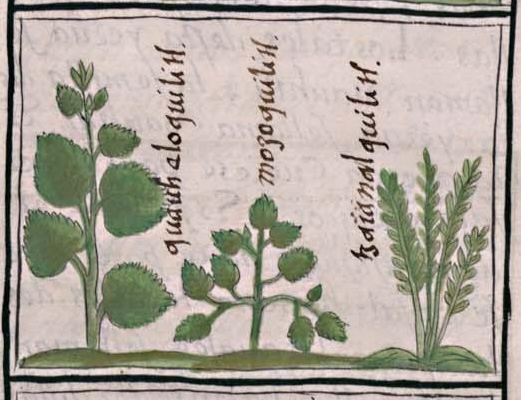 quauheloquilitl.
mozoquilitl.
tzaianalquilitl.